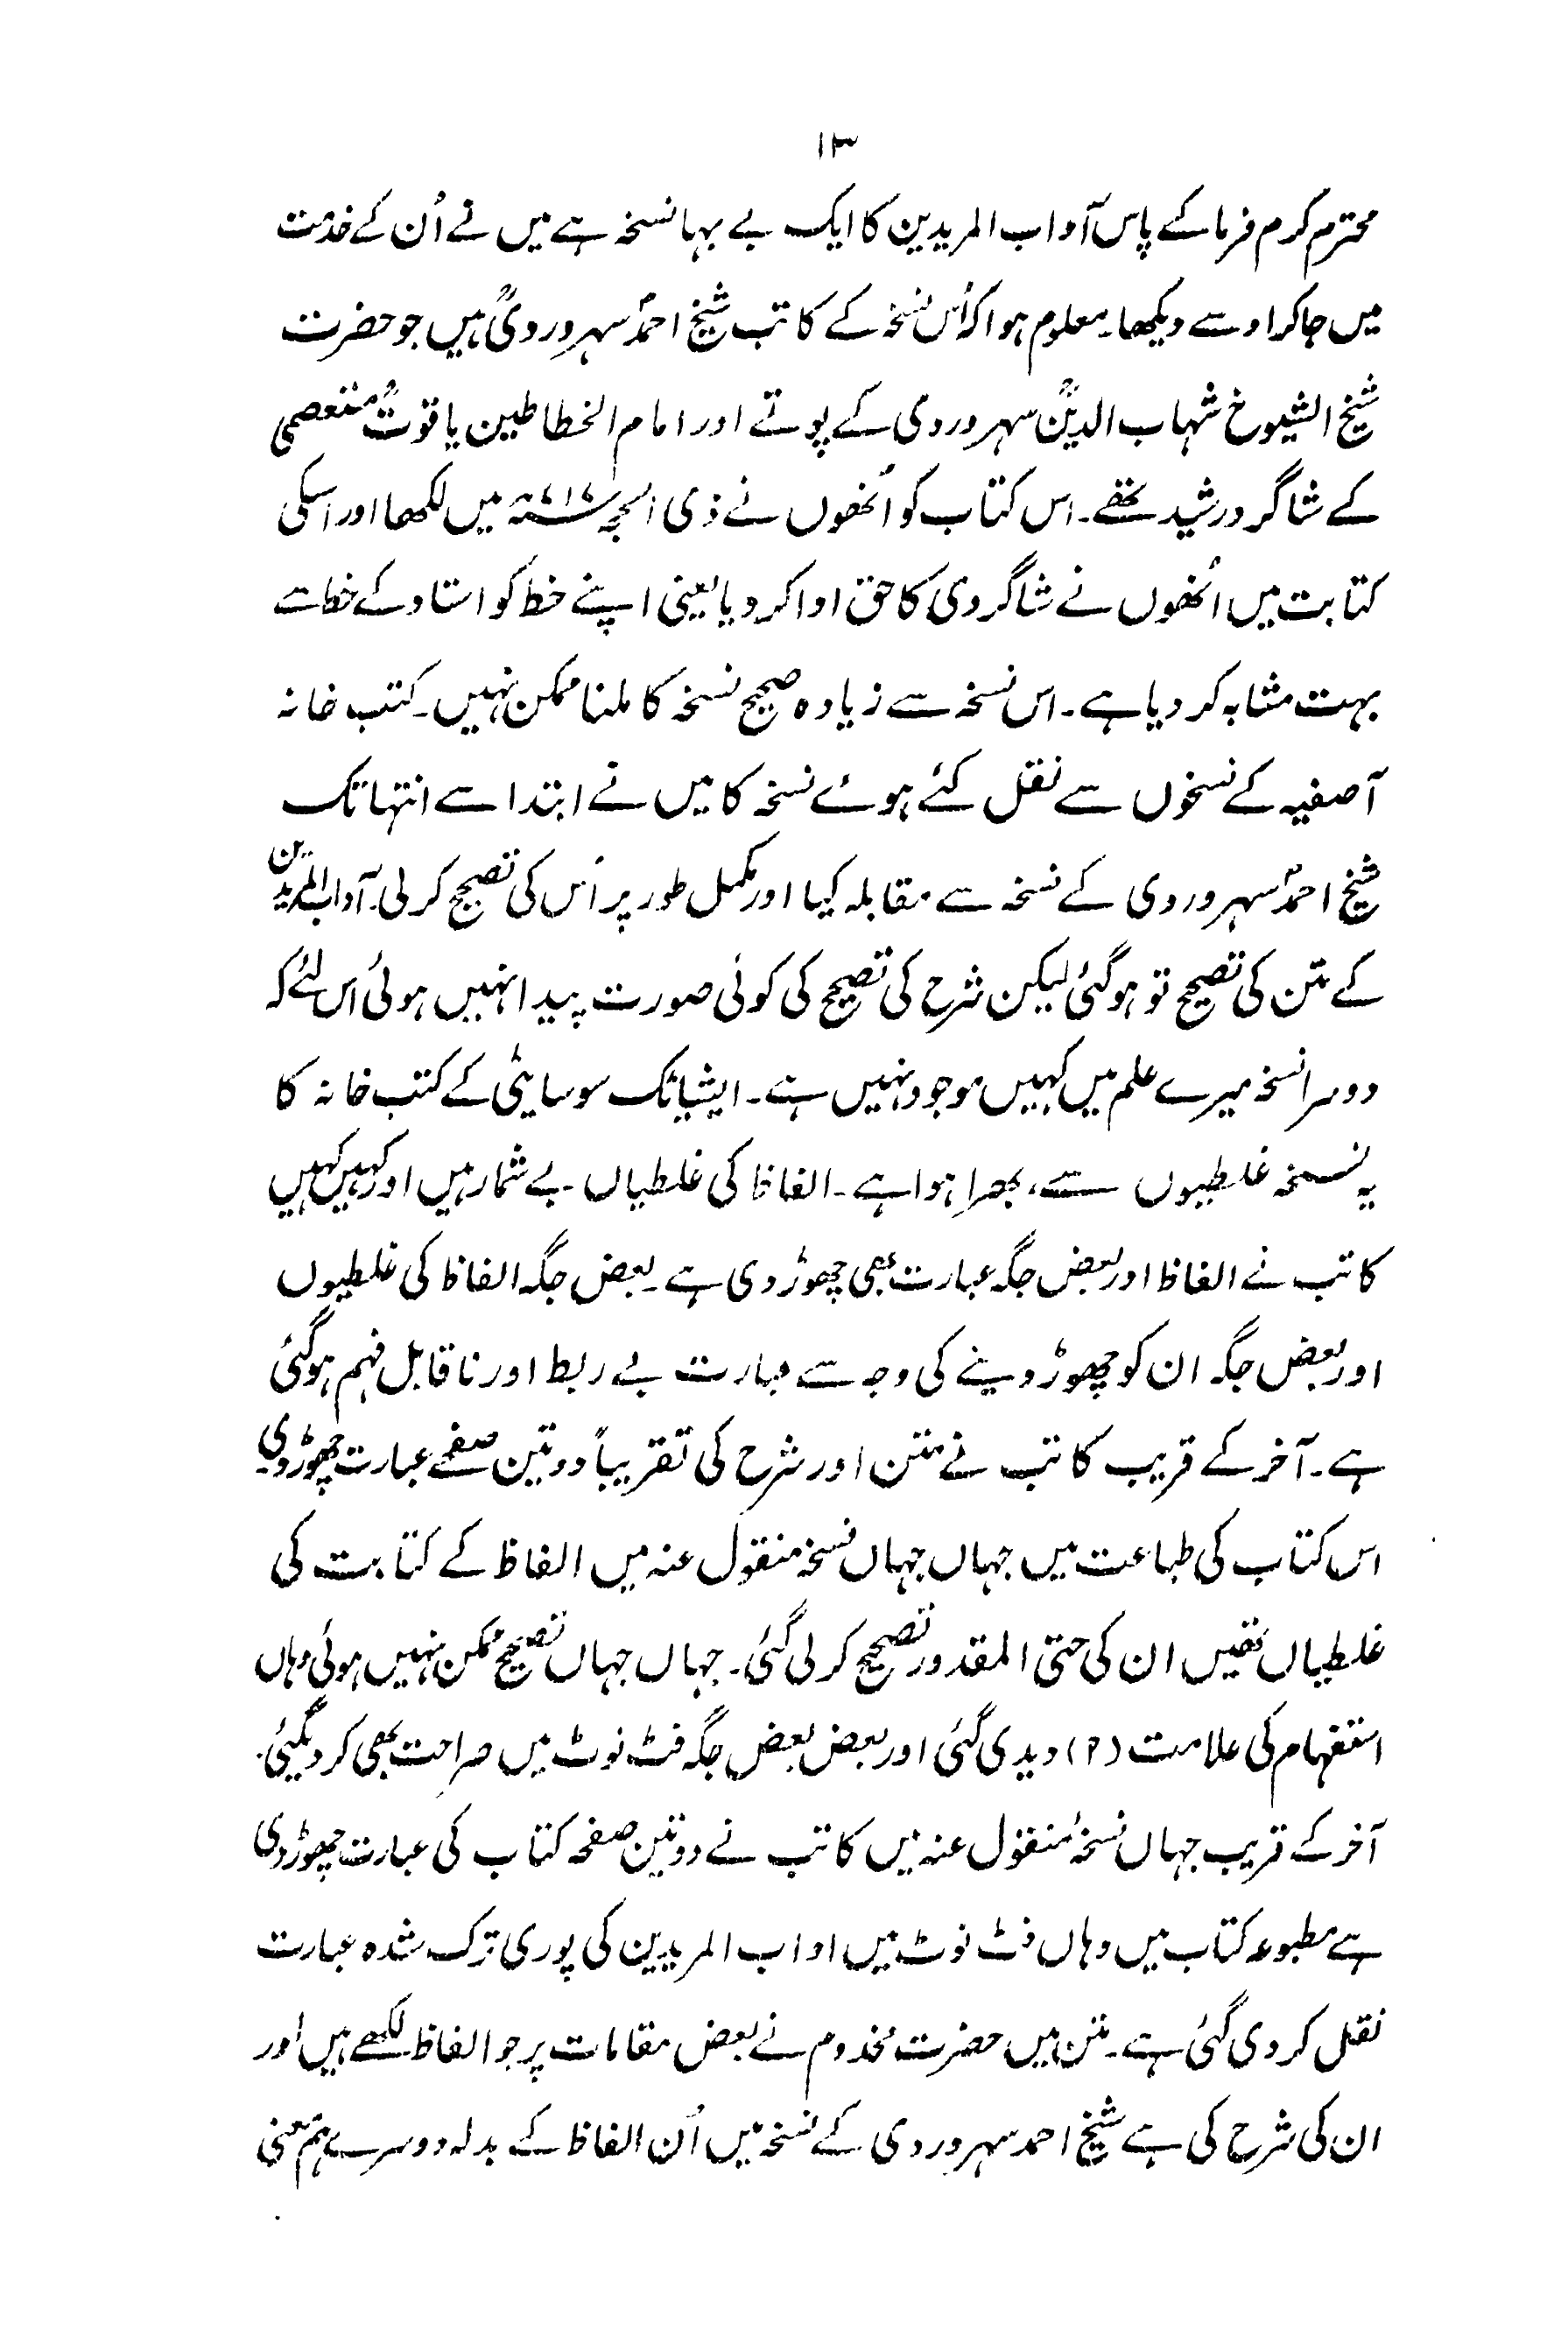 ۱۳
محترم کرم فرما کے پاس آداب المریدین کا ایک بے بہا نسخہ ہے میں نے اُن کے خدمت
میں جاکر اوسے دیکھا۔ معلوم ہوا کہ اُس نسخہ کے کاتب شیخ احمدؒ سہروردیؒ ہیں جو حضرت
شیخ الشیوخ شہاب الدینؒ سہروردی کے پوتے اور امام الخطاطین یاقوتؒ مستعصمی
کے شاگرد رشید تھے۔ اس کتاب کو اُنھوں نے ذی الحجہ میں لکھا اور اسکی
کتابت میں اُنھوں نے شاگردی کا حق ادا کردیا یعنی اپنے خط کو استاد کے خط سے
بہت مشابہ کردیا ہے۔ اس نسخہ سے زیادہ صحیح نسخہ کا ملنا ممکن نہیں۔ کتب خانہ
آصفیہ کے نسخوں سے نقل کئے ہوئے نسخہ کا میں نے ابتدا سے انتہا تک
شیخ احمدؒ سہروردی کے نسخہ سے مقابلہ کیا اور مکمل طور پر اُس کی تصحیح کرلی۔ آداب المریدین
کے متن کی تصحیح تو ہوگئی لیکن شرح کی تصحیح کی کوئی صورت پیدا نہیں ہوئی اس لئے کہ
دوسرا نسخہ میرے علم میں کہیں موجود نہیں ہے۔ ایشیاٹک سوسایٹی کے کتب خانہ کا
یہ نسخہ غلطیوں سے بھرا ہوا ہے۔ الفاظ کی غلطیاں بے شمار ہیں اور کہیں کہیں
کاتب نے الفاظ اور بعض جگہ عبارت بھی چھوڑ دی ہے۔ بعض جگہ الفاظ کی غلطیوں
اور بعض جگہ ان کو چھوڑ دینے کی وجہ سے عبارت بے ربط اور ناقابل فہم ہوگئی
ہے۔ آخر کے قریب کاتب نے متن اور شرح کی تقریباً دو تین صفحے عبارت چھوڑ دی۔
اس کتاب کی طباعت میں جہاں جہاں نسخہ منقول عنہ میں الفاظ کے کتابت کی
غلطیاں تھیں ان کی حتی المقدور تصحیح کرلی گئی۔ جہاں جہاں تصحیح ممکن نہیں ہوئی وہاں
استفہام کی علامت (؟) دیدی گئی اور بعض بعض جگہ فٹ نوٹ میں صراحت بھی کردیگئی۔
آخر کے قریب جہاں نسخۂ منقول عنہ میں کاتب نے دو تین صفحہ کتاب کی عبارت چھوڑ دی
ہے مطبوعہ کتاب میں وہاں فٹ نوٹ میں اداب المریدین کی پوری ترک شدہ عبارت
نقل کردی گئی ہے۔ متن میں حضرت مخدوم نے بعض مقامات پر جو الفاظ لکھے ہیں اور
ان کی شرح کی ہے شیخ احمد سہروردی کے نسخہ میں اُن الفاظ کے بدلہ دوسرے ہم معنی